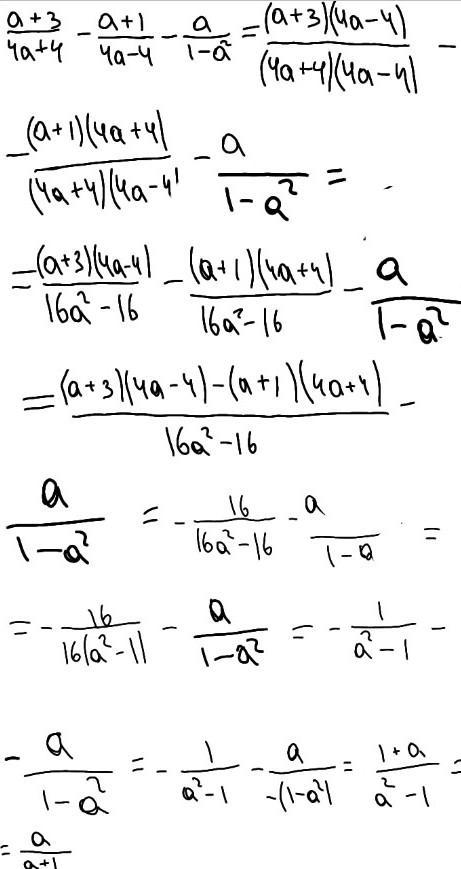 (a+3)/(4a+4) - (a+1)/(4a-4) - a/(1-a²) = (a+3)(4a-4)/(4a+4)(4a-4) -
- (a+1)(4a+4)/(4a+4)(4a-4) - a/(1-a²) =
= (a+3)(4a-4)/(16a²-16) - (a+1)(4a+4)/(16a²-16) - a/(1-a²)
= ((a+3)(4a-4)-(a+1)(4a+4))/(16a²-16) -
a/(1-a²) = - 16/(16a²-16) - a/(1-a) =
= - 16/16(a²-1) - a/(1-a²) = - 1/(a²-1) -
- a/(1-a²) = - 1/(a²-1) - a/-(1-a²) = (1+a)/(a²-1) =
= a/(a+1)